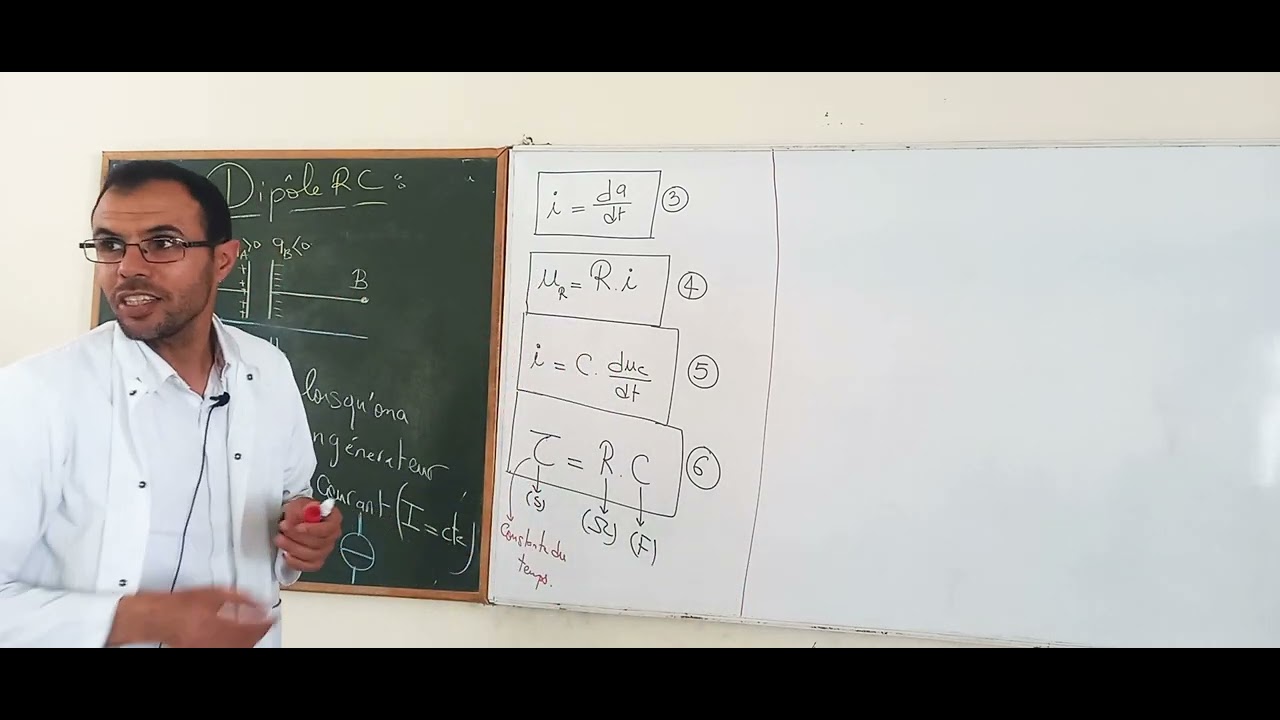 Dipôle RC :
qA>0 qB<0
B
lorsqu'on a
générateur
courant (I = cte)
i = dq/dt ③
uR = R.i ④
i = C. duc/dt ⑤
τ = R.C ⑥
(s) (Ω) (F)
Constante du
temps.